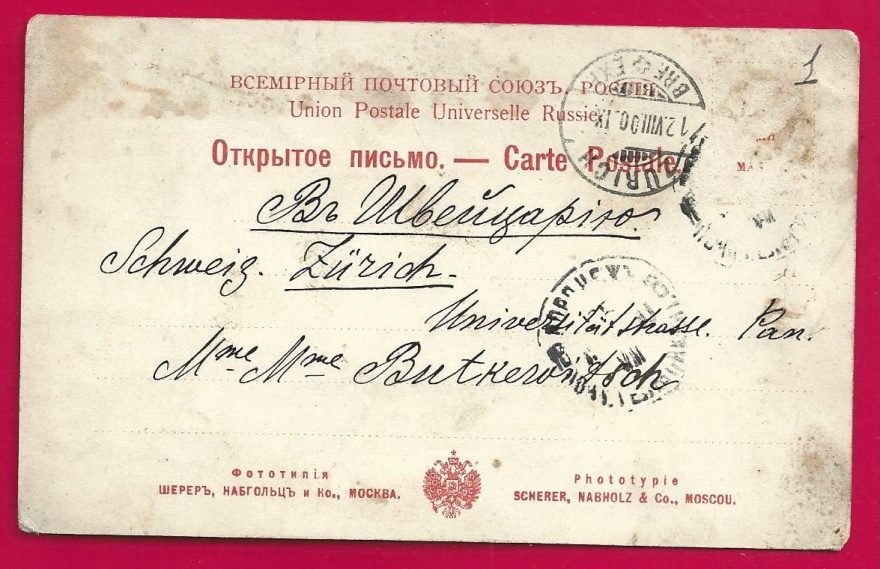 1
ВСЕМІРНЫЙ ПОЧТОВЫЙ СОЮЗЪ. РОССІЯ.
Union Postale Universelle Russie
Открытое письмо. — Carte Postale.
ZÜRICH
BRF. EXP.
12.VIII.00.IX
Въ Швейцарію.
Schweiz. Zürich.
Universitätstrasse. Pan.
Mme Mme Butkewitsch
ВОРОНЕЖЪ
Фототипія
ШЕРЕРЪ, НАБГОЛЬЦЪ и Ко., МОСКВА.
Phototypie
SCHERER, NABHOLZ & Co., MOSCOU.